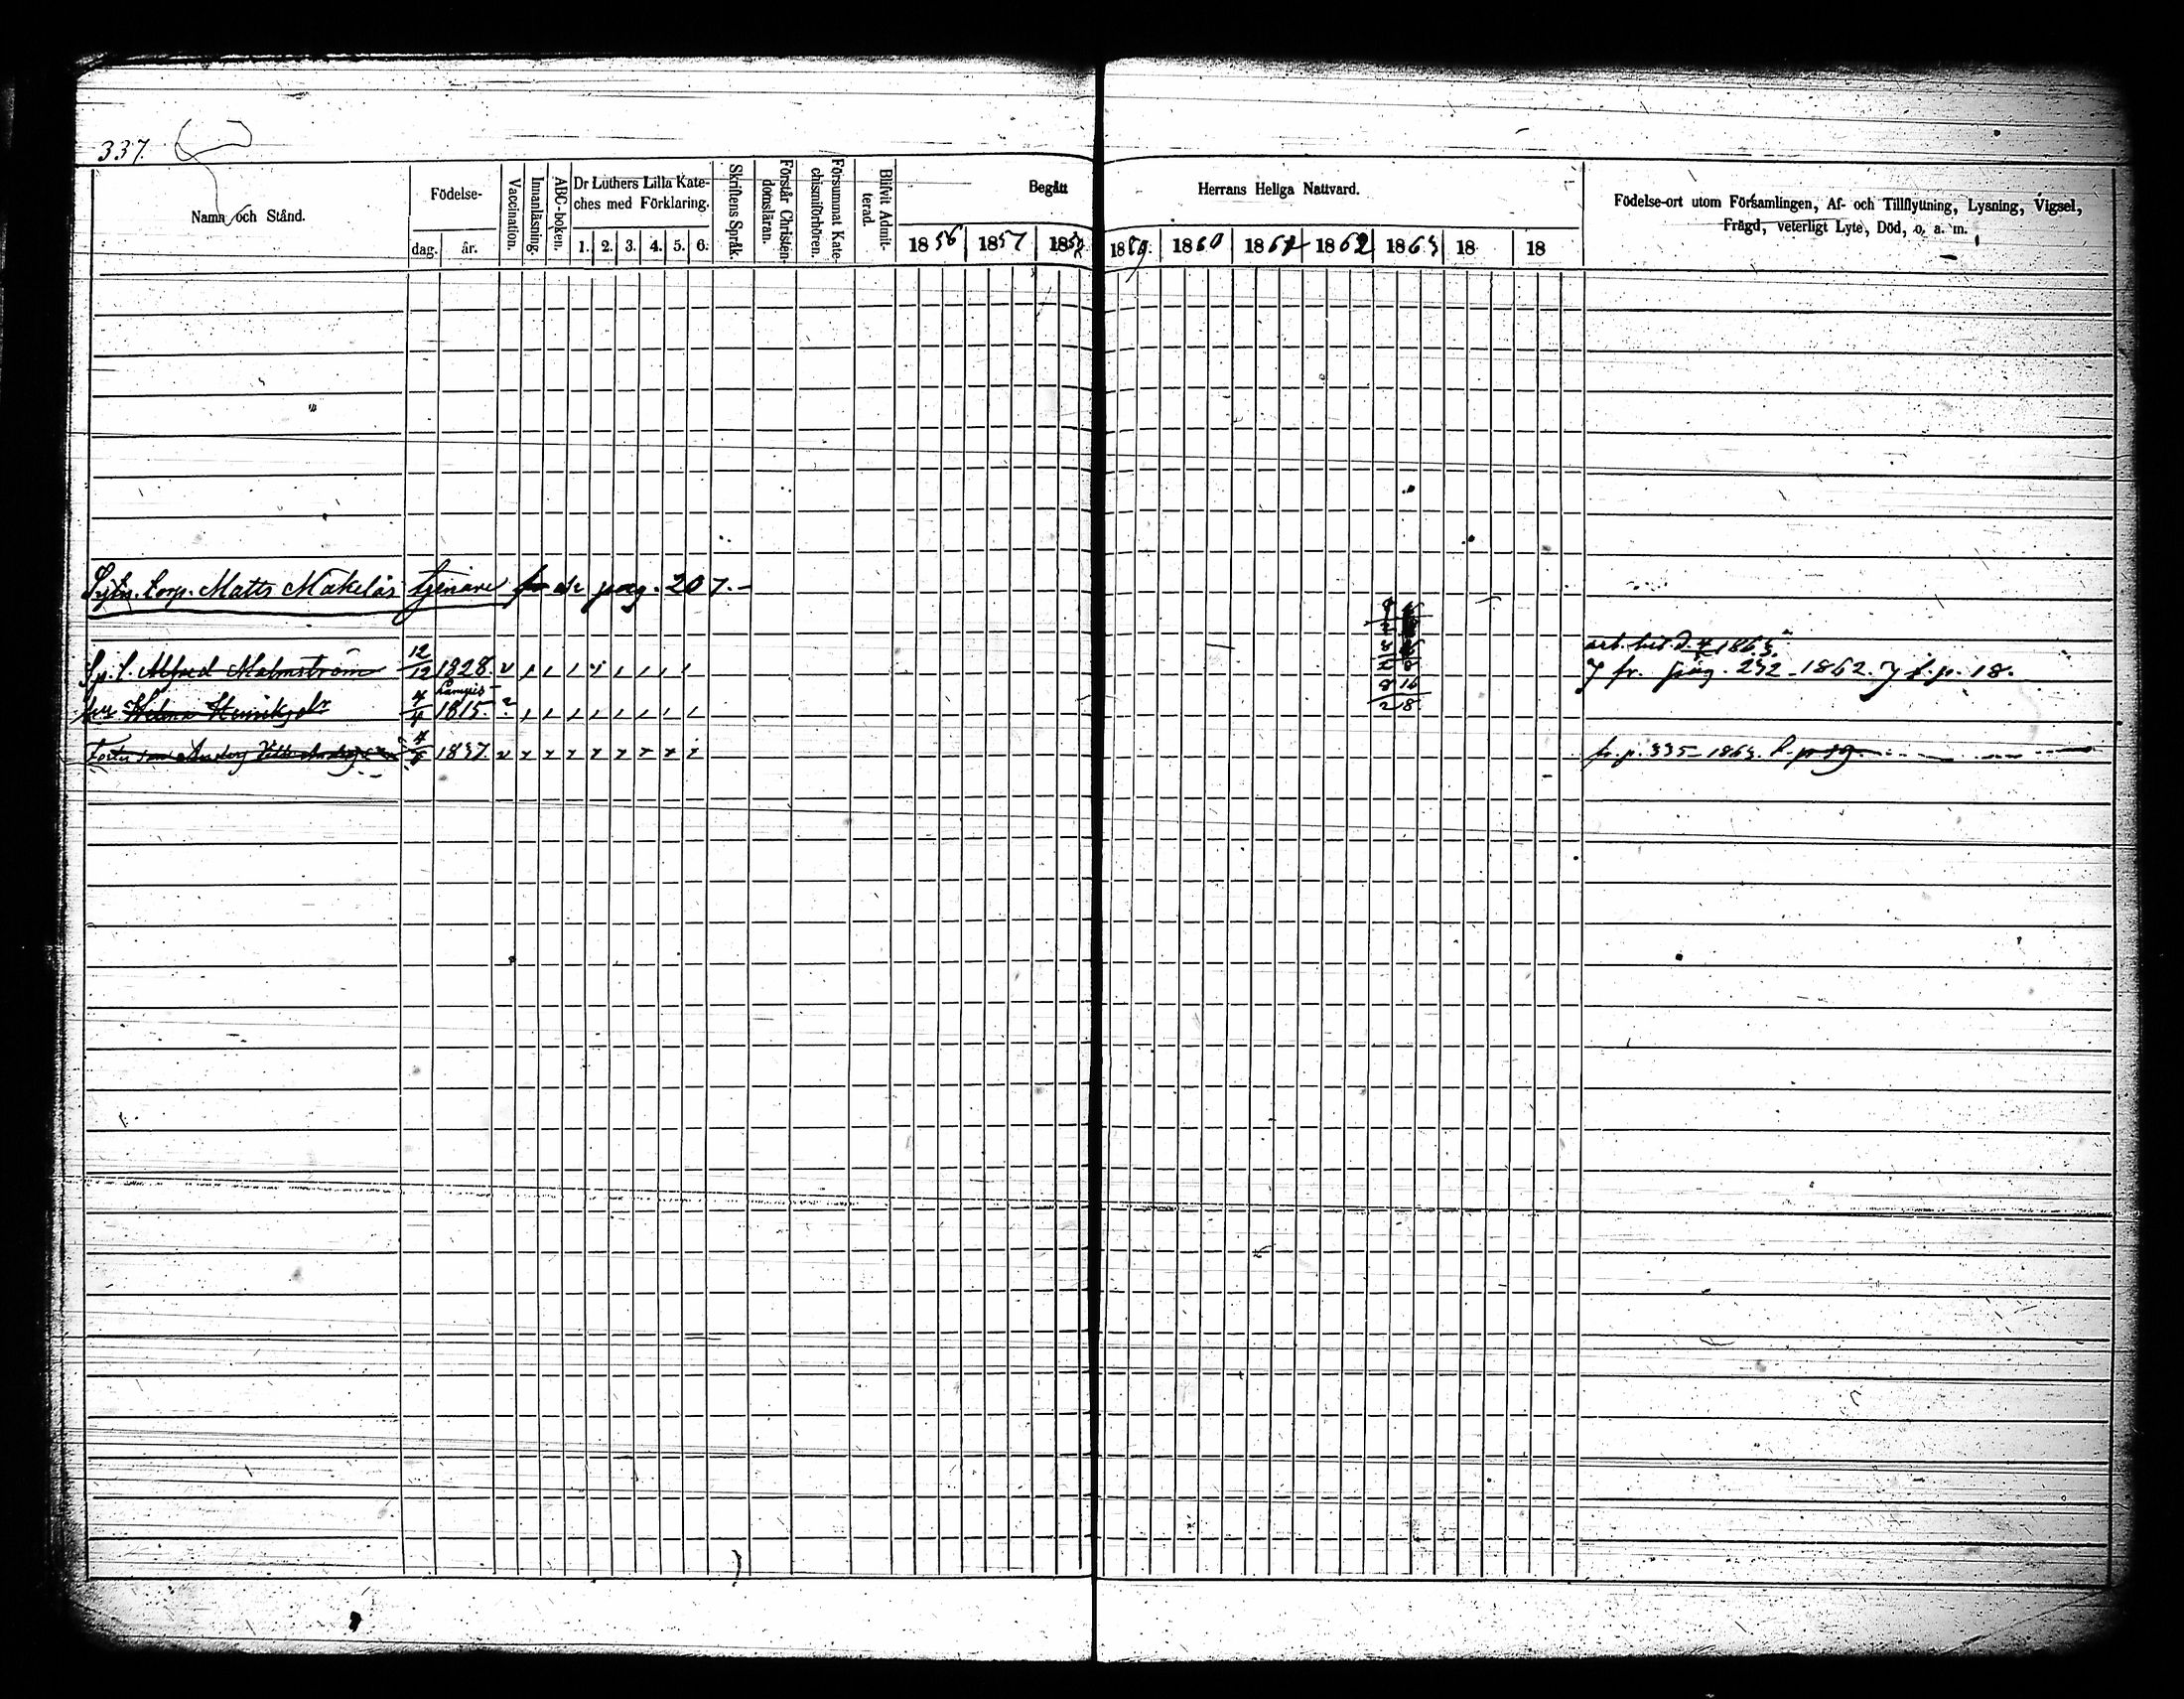 337.
Namn och Stånd.
Födelse-
dag.
år.
Vaccination.
Innanläsning.
ABC-boken.
Dr Luthers Lilla Kate-
ches med Förklaring.
1. 2. 3. 4. 5. 6.
Skriftens Språk.
Förstår Christen-
domsläran.
Försummat Kate-
chismiförhören.
Blifvit Admit-
terad.
Begått
Herrans Heliga Nattvard.
1856 1857 1858 1859. 1860 1861 1862 1863 18 18
Födelse-ort utom Församlingen, Af- och Tillflyttning, Lysning, Vigsel,
Frägd, veterligt Lyte, Död, o. a. m.
Corp. Matts Mäkeläs tjenare pag. 207.
1863.
Alfred Malmström 12/12 1828. fr. pag. 232 1862. p. 18.
Helena Henriksdr 1815. ?
Anders 1837. fr. p. 335 1863. p. 19.